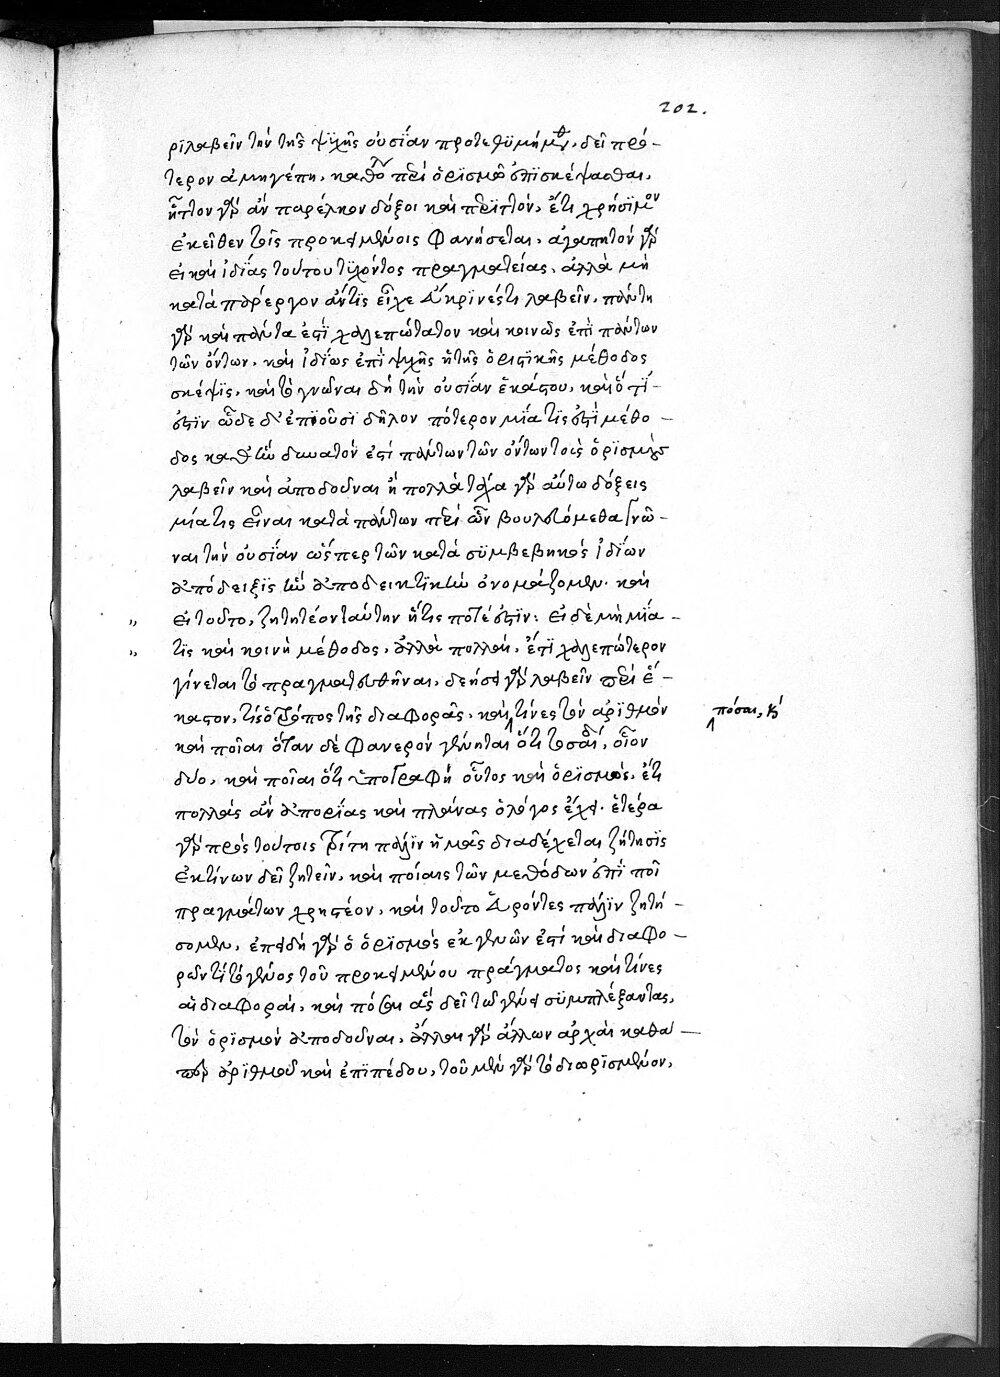 202.
ριλαβεῖν τὴν τῆς ψυχῆς οὐσίαν προτεθυμήμεθα, δεῖ πρό-
τερον ἀμηγέπη, καθόλου περὶ ὁρισμοῦ ἐπισκέψασθαι,
ἧττον γὰρ ἂν παρέλκον δόξοι καὶ περιττὸν, ἔτι χρήσιμον
ἐκεῖθεν τοῖς προκειμένοις φανήσεται, ἀγαπητὸν γὰρ
εἰ καὶ ἰδίας τούτου τυχόντος πραγματείας, ἀλλὰ μὴ
κατὰ πάρεργον ἄν τις εἶχε διακρινέστι λαβεῖν, πάντη
γὰρ καὶ πάντα ἐστὶ χαλεπώτατον καὶ κοινῶς ἐπὶ πάντων
τῶν ὄντων, καὶ ἰδίως ἐπὶ ψυχῆς ἡ τῆς ὁριστικῆς μέθοδος
σκέψις, καὶ τὸ γνῶναι δὴ τὴν οὐσίαν ἑκάστου, καὶ ὅ τί-
ἐστιν ὧδε δ' ἐπιοῦσι δῆλον πότερον μία τίς ἐστι μέθο-
δος καθ' ἣν δυνατὸν ἐπὶ πάντων τῶν ὄντων τοὺς ὁρισμοὺς
λαβεῖν καὶ ἀποδοῦναι ἢ πολλὰ τάχα γὰρ αὕτω δόξεις
μία τις εἶναι κατὰ πάντων περὶ ὧν βουλοίμεθα γνῶ-
ναι τὴν οὐσίαν ὥσπερ τῶν κατὰ συμβεβηκὸς ἰδίων
ἀπόδειξις ἣν ἀποδεικτικὴν ὀνομάζομεν. καὶ
„ εἰ τοῦτο, ζητητέον ταύτην ἥτις ποτέ ἐστιν: εἰ δὲ μὴ μία-
„ τις καὶ κοινὴ μέθοδος, ἀλλὰ πολλαὶ, ἔτι χαλεπώτερον
γίνεται τὸ πραγματευθῆναι, δεήσει γὰρ λαβεῖν περὶ ἕ-
καστον, τίς ὁ τρόπος τῆς διαφορᾶς, καὶ τίνες τὸν ἀριθμὸν
πόσαι, κ
καὶ ποῖαι ὅταν δὲ φανερὸν γένηται ὅτι τοσαίδε, οἷον
δύο, καὶ ποῖαι ὅτι ὑπογραφή οὗτος καὶ ὁρισμός, ἔτι
πολλὰς ἂν ἀπορίας καὶ πλάνας ὁ λόγος ἔχει. ἑτέρα
γὰρ πρὸς τούτοις τρίτη πάλιν ἡμᾶς διαδέχεται ζήτησις
ἐκ τίνων δεῖ ζητεῖν, καὶ ποίαις τῶν μεθόδων ἐπὶ ποῖ
πραγμάτων χρηστέον, καὶ τοῦτο διαροῦντες πάλιν ζητή-
σομεν, ἐπειδὴ γὰρ ὁ ὁρισμὸς ἐκ γενῶν ἐστὶ καὶ διαφο-
ρῶν τί τὸ γένος τοῦ προκειμένου πράγματος καὶ τίνες
αἱ διαφοραὶ, καὶ πόσαι ἃς δεῖ τῷ γένει συμπλέξαντας,
τὸν ὁρισμὸν ἀποδοῦναι, ἄλλαι γὰρ ἄλλων ἀρχαὶ καθά-
περ ἀριθμοῦ καὶ ἐπιπέδου, τοῦ μὲν γὰρ τὸ διωρισμένον,